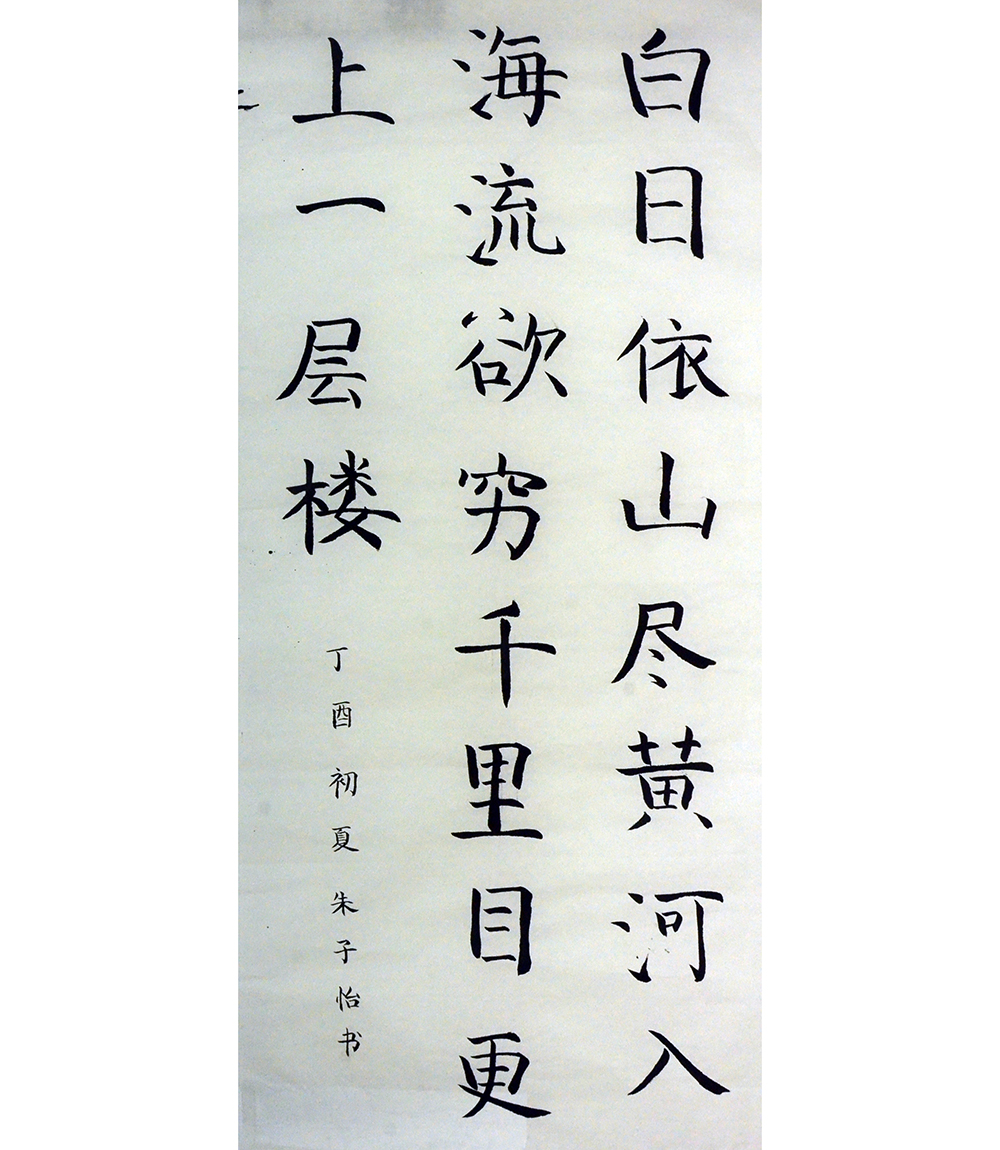 白日依山尽黄河入
海流欲穷千里目更
上一层楼
丁酉初夏朱子怡书